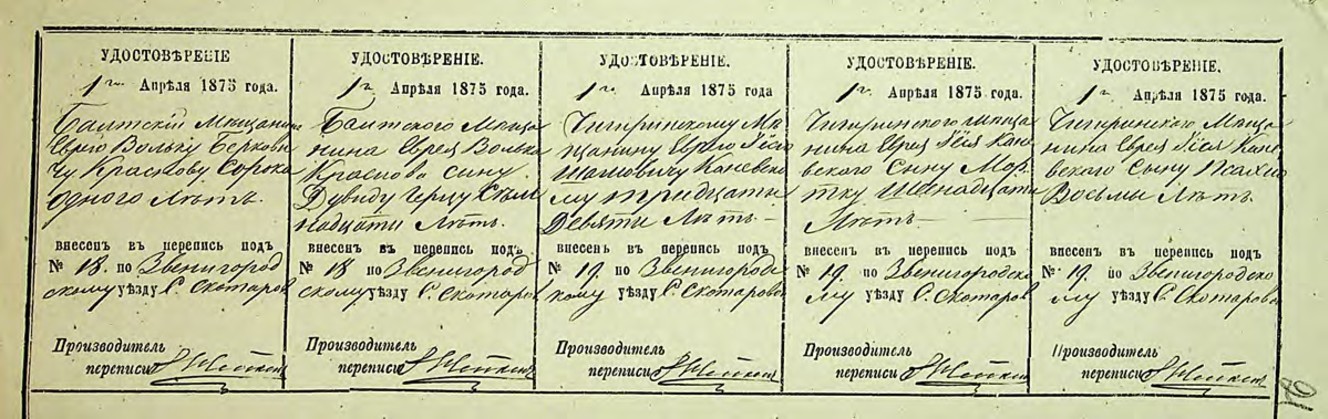 УДОСТОВѢРЕНІЕ
1го Апрѣля 1875 года.
Балтскій Мѣщанинъ
Еврею Вольку Беркови
чу Краснову Сорока
одного Лѣтъ.
внесенъ въ перепись подъ
№ 18. по Звенигород
скому уѣзду С. Скотаров
Производитель
переписи
УДОСТОВѢРЕНІЕ.
1г. Апрѣля 1875 года.
Балтского Мѣща
нина Еврея Волька
Краснова сыну
Дувиду Герцу Семи
надцати Лѣтъ.
внесенъ въ перепись подъ
№ 18 по Звенигород
скому уѣзду С. Скотаров
Производитель
переписи
УДОСТОВѢРЕНІЕ.
1го Апрѣля 1875 года
Чигиринскому Мѣ
щанину Еврею
Каневско
му тридцати
Девяти Лѣтъ
внесенъ въ перепись подъ
№ 19. по Звенигородс
кому уѣзду С. Скотарово
Производитель
переписи
УДОСТОВѢРЕНІЕ.
1г. Апрѣля 1875 года.
Чигиринского мѣща
нина Еврея Іося Кане
вского Сыну Мор
тку Шенадцати
Лѣтъ
внесенъ въ перепись подъ
№ 19. по Звенигородско
му уѣзду С. Скотаров
Производитель
переписи
УДОСТОВѢРЕНІЕ.
1г. Апрѣля 1875 года.
Чигиринского Мѣща
нина Еврея Іося Кане
вского Сыну
Восьми Лѣтъ.
внесенъ въ перепись подъ
№ 19. по Звенигородско
му уѣзду С. Скотарово
Производитель
переписи